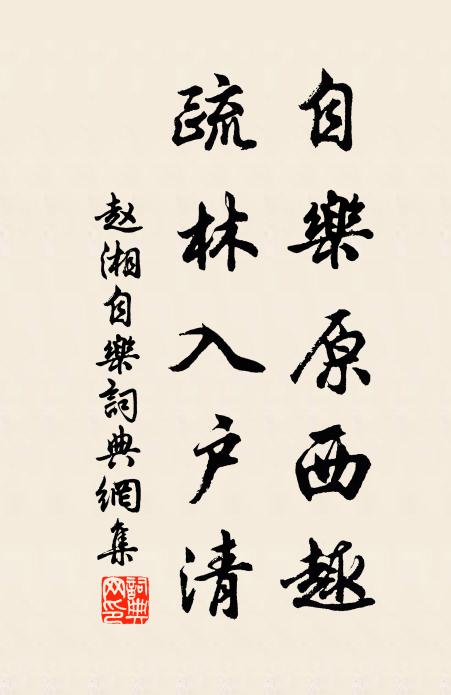 自樂原西趣
疏林入户清
赵湘自樂詞典網集
詞典网印